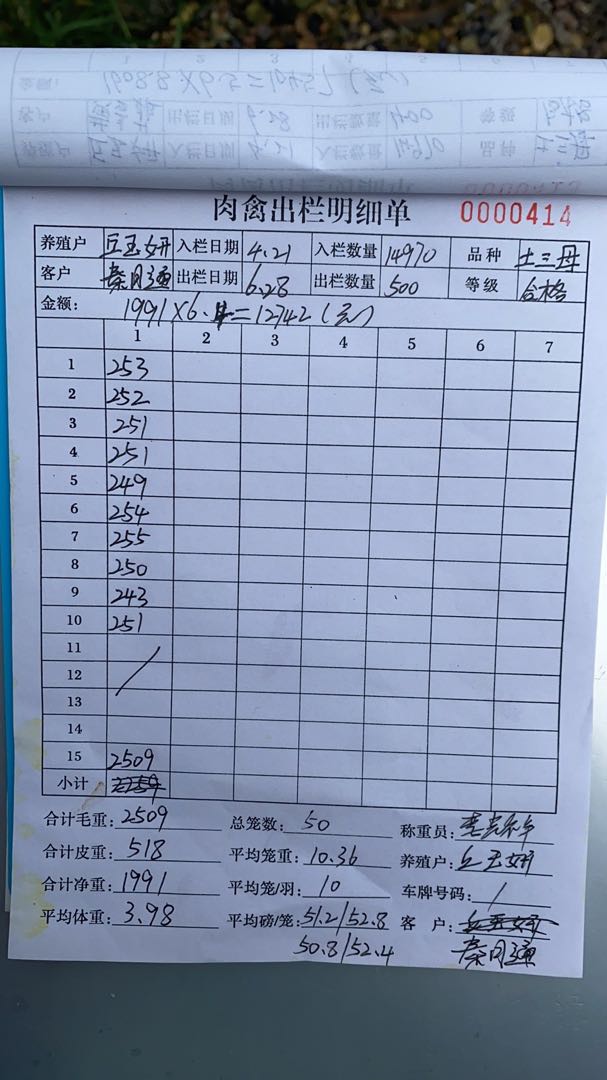 肉禽出栏明细单 0000414
养殖户 丘玉妍 入栏日期 4.21 入栏数量 14970 品种 土三母
客户 秦月强 出栏日期 6.28 出栏数量 500 等级 合格
金额: 1991×6.4=12742(元)
1 2 3 4 5 6 7
1 253
2 252
3 251
4 251
5 249
6 254
7 255
8 250
9 243
10 251
11
12
13
14
15 2509
小计
合计毛重: 2509 总笼数: 50 称重员:
合计皮重: 518 平均笼重: 10.36 养殖户: 丘玉妍
合计净重: 1991 平均笼/羽: 10 车牌号码: /
平均体重: 3.98 平均磅/笼: 51.2/52.8 客户: 丘玉妍
50.8/52.4 秦月强